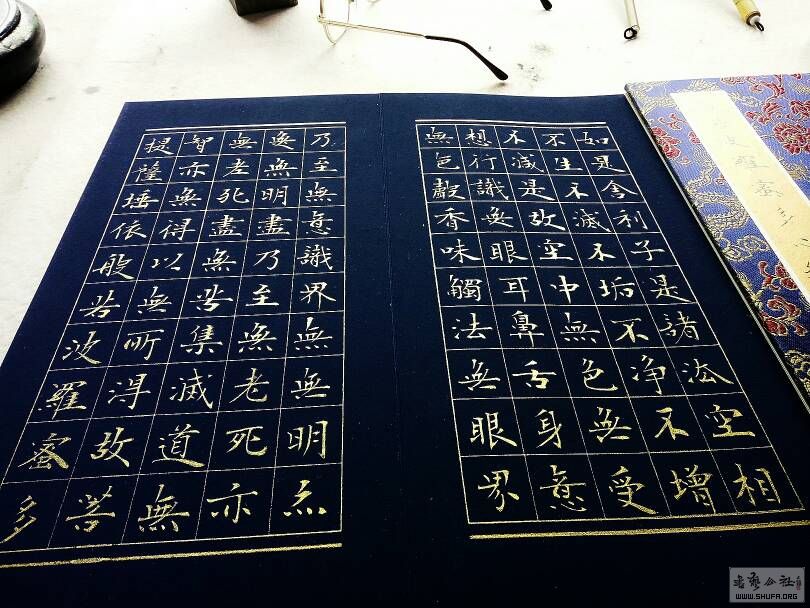 如是舍利子是諸法空相
不生不滅不垢不净不增
不減是故空中無色無受
想行識無眼耳鼻舌身意
無色聲香味觸法無眼界
乃至無意識界無無明亦
無無明盡乃至無老死亦
無老死盡無苦集滅道無
智亦無得以無所得故菩
提薩埵依般若波羅蜜多
WWW.SHUFA.ORG